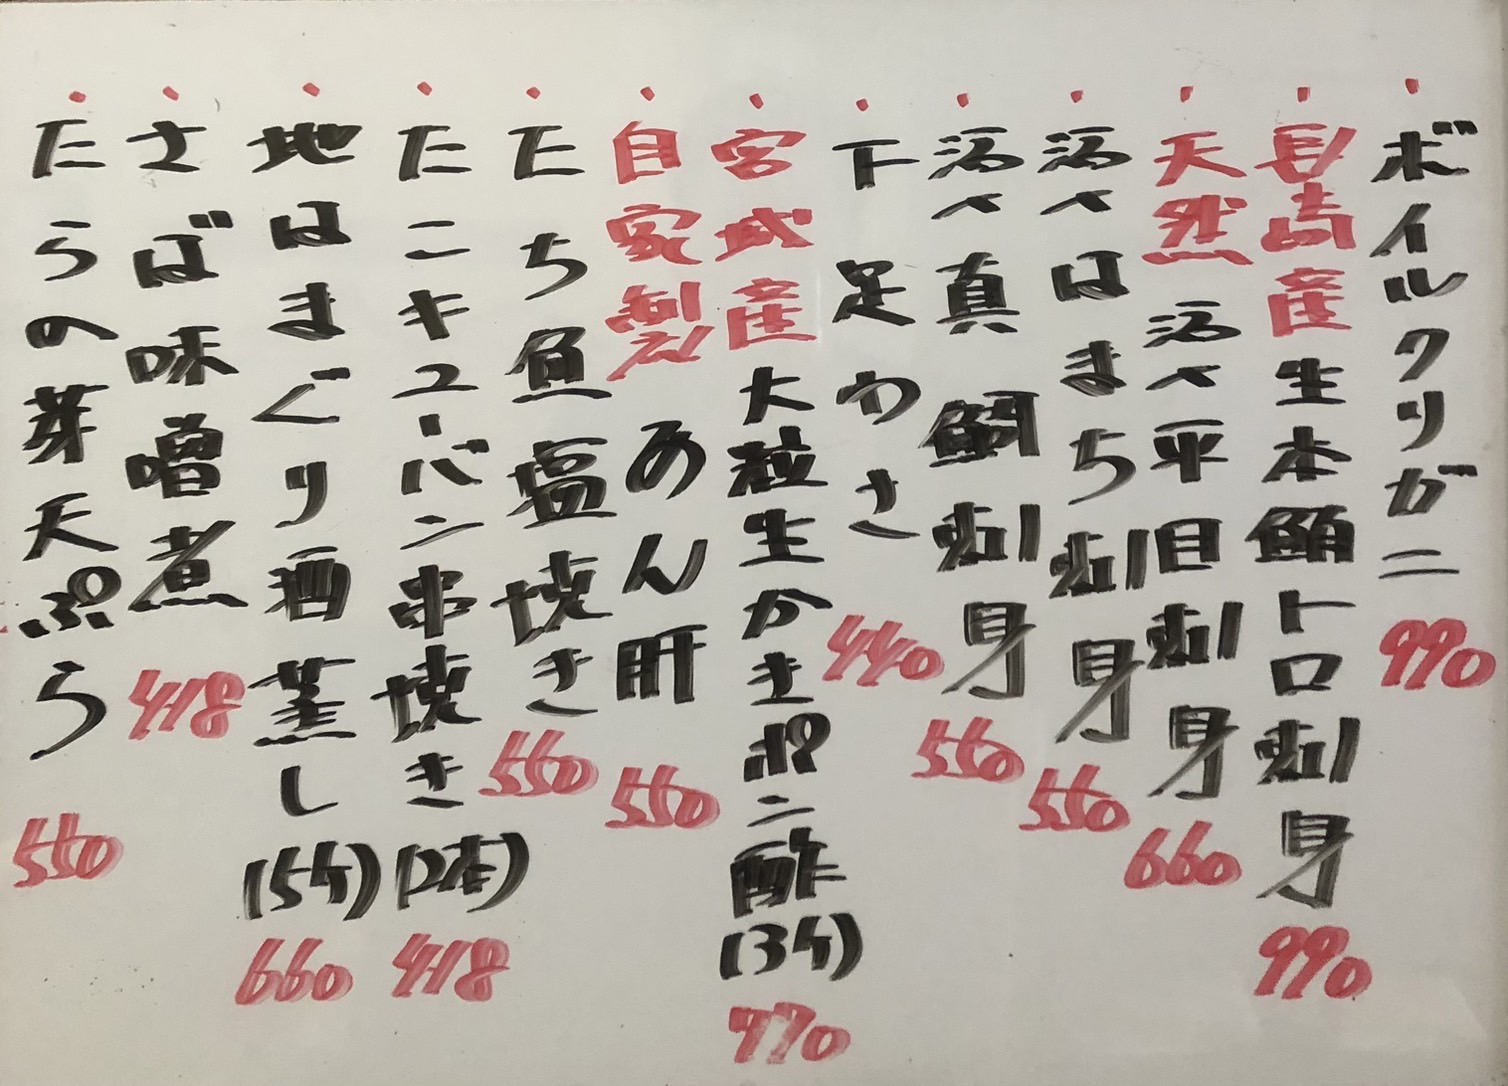 ・ボイルクリガニ 990
・長崎産生本鮪トロ刺身 990
・天然活〆平目刺身 660
・活〆はまち刺身 550
・活〆真鯛刺身 550
・下足わさ 440
・宮城産大粒生かきポン酢(3ケ) 770
・自家製あん肝 550
・たち魚塩焼き 550
・たこキューバン串焼き(2本) 418
・地はまぐり酒蒸し(5ケ) 660
・さば味噌煮 418
・たらの芽天ぷら 550